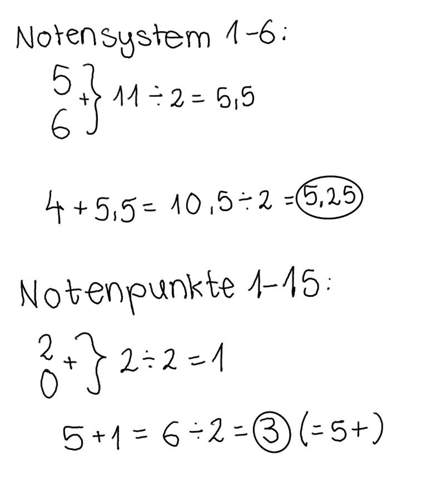 Notensystem 1-6:
5
+} 11 ÷ 2 = 5,5
6
4 + 5,5 = 10,5 ÷ 2 = 5,25
Notenpunkte 1-15:
2
+} 2 ÷ 2 = 1
0
5 + 1 = 6 ÷ 2 = 3 (= 5+)